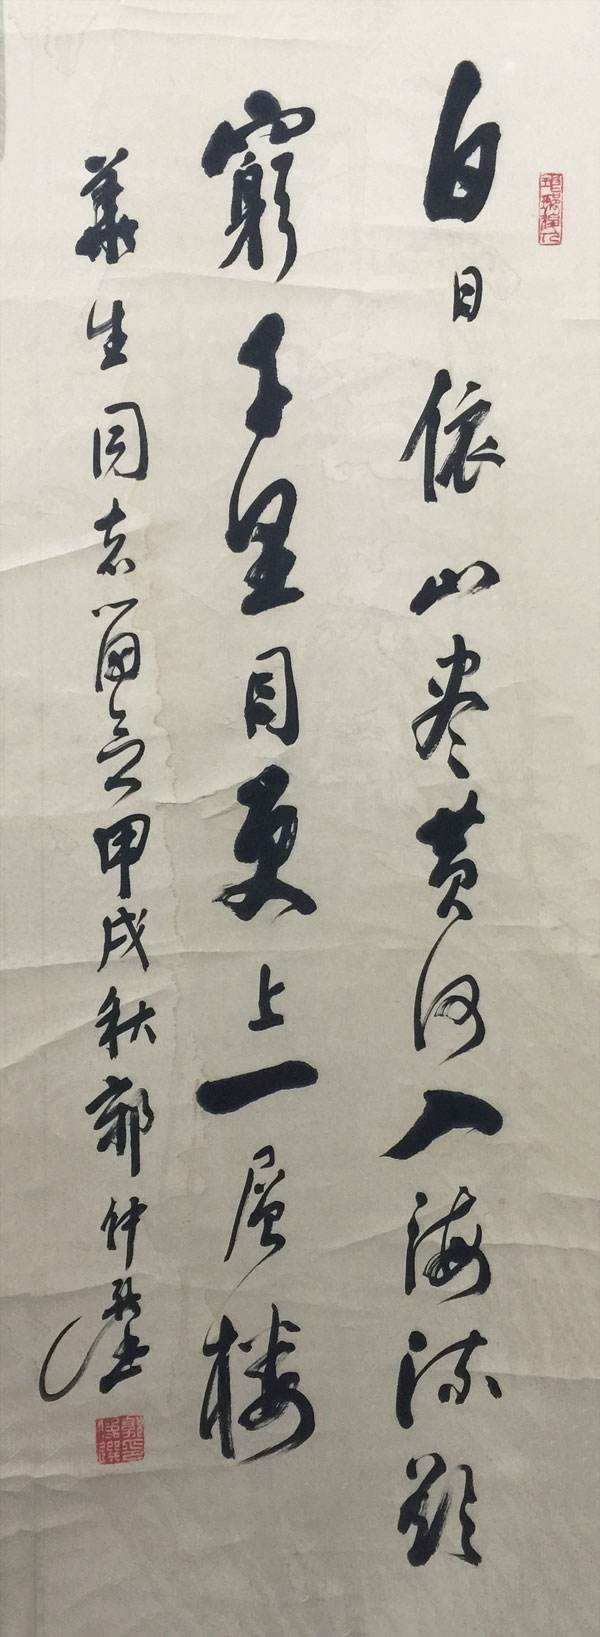 白日依山尽黄河入海流欲
窮千里目更上一层楼
華生同志留念甲戌秋郭仲選